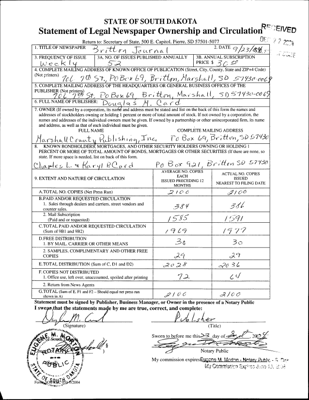 STATE OF SOUTH DAKOTA
Statement of Legal Newspaper Ownership and Circulation
RECEIVED
Return to: Secretary of State, 500 E. Capitol, Pierre, SD 57501-5077
1. TITLE OF NEWSPAPER Britton Journal 2. DATE
3. FREQUENCY OF ISSUE Weekly 3A. NO. OF ISSUES PUBLISHED ANNUALLY 52 3B. ANNUAL SUBSCRIPTION PRICE $
4. COMPLETE MAILING ADDRESS OF KNOWN OFFICE OF PUBLICATION (Street, City, County, State and ZIP+4 Code) (Not printers)
706 7th St, PO Box 69, Britton, Marshall, SD 57430-0069
5. COMPLETE MAILING ADDRESS OF THE HEADQUARTERS OR GENERAL BUSINESS OFFICE OF THE PUBLISHER (Not printers)
706 7th St, PO Box 69, Britton, Marshall, SD 57430-0069
6. FULL NAME OF PUBLISHER: Douglas M. Card
7. OWNER (If owned by a corporation, its name and address must be stated and list on the back of this form the names and
addresses of stockholders owning or holding 1 percent or more of total amount of stock. If not owned by a corporation, the
names and addresses of the individual owners must be given. If owned by a partnership or other unincorporated firm, its name
and address, as well as that of each individual must be given.
FULL NAME COMPLETE MAILING ADDRESS
Marshall County Publishing, Inc. PO Box 69, Britton, SD 57430
8. KNOWN BONDHOLDERS, MORTGAGEES, AND OTHER SECURITY HOLDERS OWNING OR HOLDING 1
PERCENT OR MORE OF TOTAL AMOUNT OF BONDS, MORTGAGES OR OTHER SECURITIES (If there are none, so
note. If more space is needed, list on back of this form.
Charles L & Karyl R Card PO Box 421, Britton SD 57430
9. EXTENT AND NATURE OF CIRCULATION
AVERAGE NO. COPIES EACH ISSUED PRECEDING 12 MONTHS
ACTUAL NO. COPIES ISSUED NEAREST TO FILING DATE
A. TOTAL NO. COPIES (Net Press Run) 2100 2100
B. PAID AND/OR REQUESTED CIRCULATION
1. Sales through dealers and carriers, street vendors and counter sales. 384 386
2. Mail Subscription (Paid and or requested) 1585 1591
C. TOTAL PAID AND/OR REQUESTED CIRCULATION (Sum of 9B1 and 9B2) 1969 1977
D. FREE DISTRIBUTION
1. BY MAIL, CARRIER OR OTHER MEANS 30 30
2. SAMPLES, COMPLIMENTARY AND OTHER FREE COPIES 29 29
E. TOTAL DISTRIBUTION (Sum of C, D1 and D2) 2028 2036
F. COPIES NOT DISTRIBUTED
1. Office use, left over, unaccounted, spoiled after printing 72 64
2. Return from News Agents
G. TOTAL (Sum of E, F1 and F2 - Should equal net press run shown in A) 2100 2100
Statement must be signed by Publisher, Business Manager, or Owner in the presence of a Notary Public
I swear that the statements made by me are true, correct, and complete:
Douglas M. Card Publisher
(Signature) (Title)
Sworn to before me this
Notary Public
My commission expires Eugene M. Morton - Notary Public
My Commission Expires
EUGENE M. MORTON
NOTARY PUBLIC